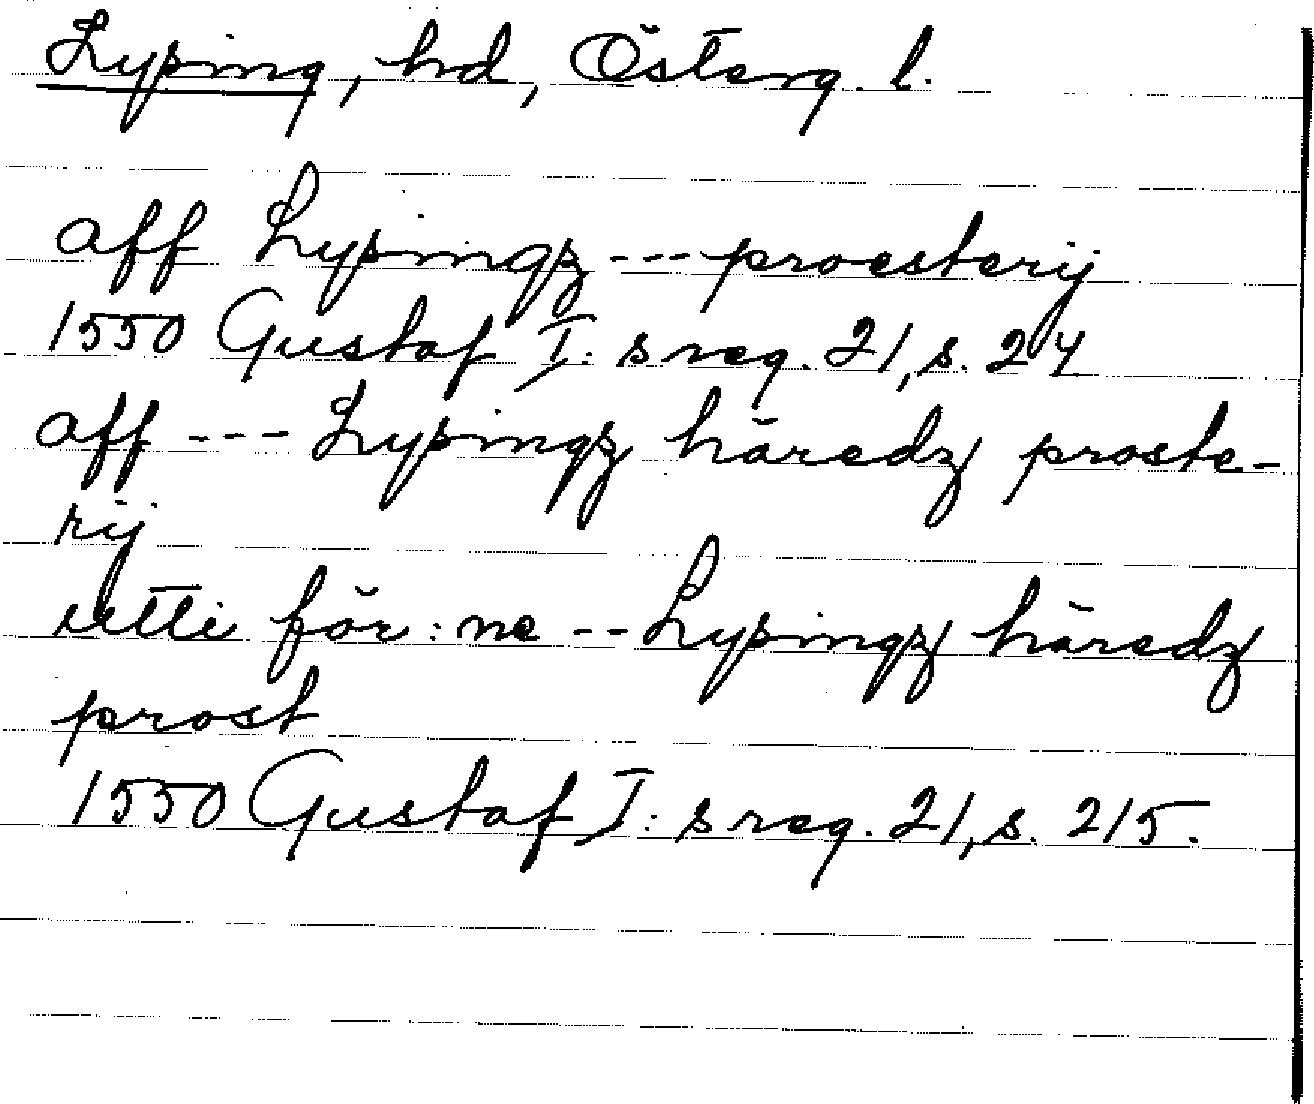 Lyping, hd, Österg. l.
aff Lypingz --- proesterij
1550 Gustaf I:s reg. 21, s. 24
aff --- Lypingz häredz proste-
rij
utti för:ne -- Lypingz häredz
prost
1550 Gustaf I:s reg. 21, s. 215.